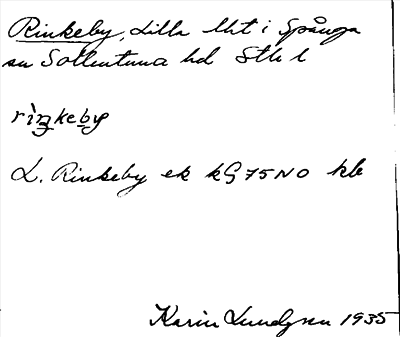 Rinkeby, Lilla Uht i Spånga
sn Sollentuna hd Sthl l
rìŋkeby
L. Rinkeby ek kG 75 NO kb
Karin Lundgren 1935